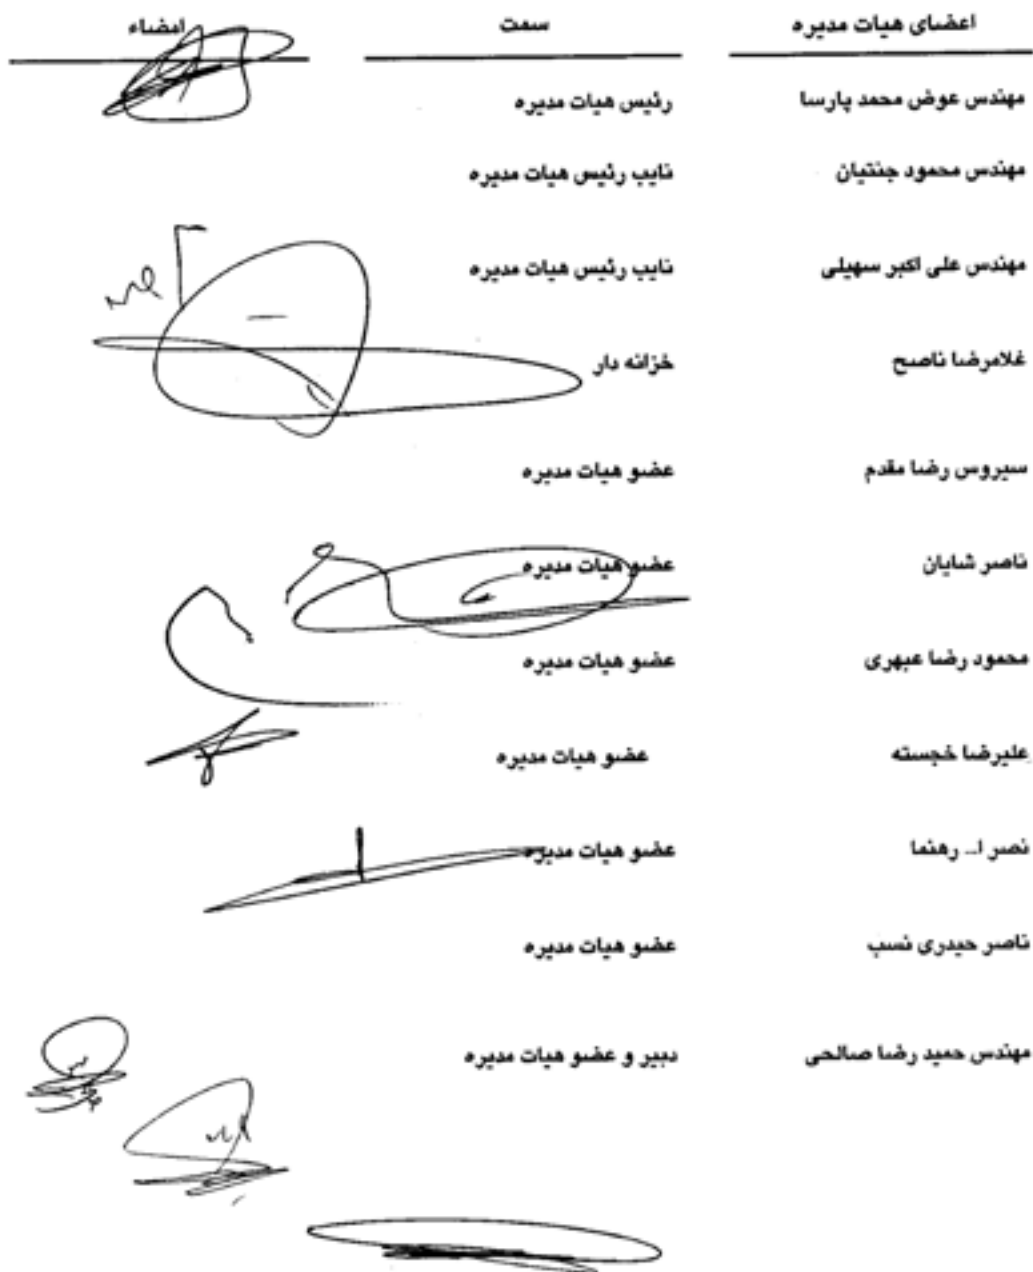 اعضای هیات مدیره سمت امضاء
مهندس عوض محمد پارسا رئیس هیات مدیره
مهندس محمود جنتیان نایب رئیس هیات مدیره
مهندس علی اکبر سهیلی نایب رئیس هیات مدیره
غلامرضا ناصح خزانه دار
سیروس رضا مقدم عضو هیات مدیره
ناصر شایان عضو هیات مدیره
محمود رضا عبهری عضو هیات مدیره
علیرضا خجسته عضو هیات مدیره
نصر ا... رهنما عضو هیات مدیره
ناصر حیدری نسب عضو هیات مدیره
مهندس حمید رضا صالحی دبیر و عضو هیات مدیره